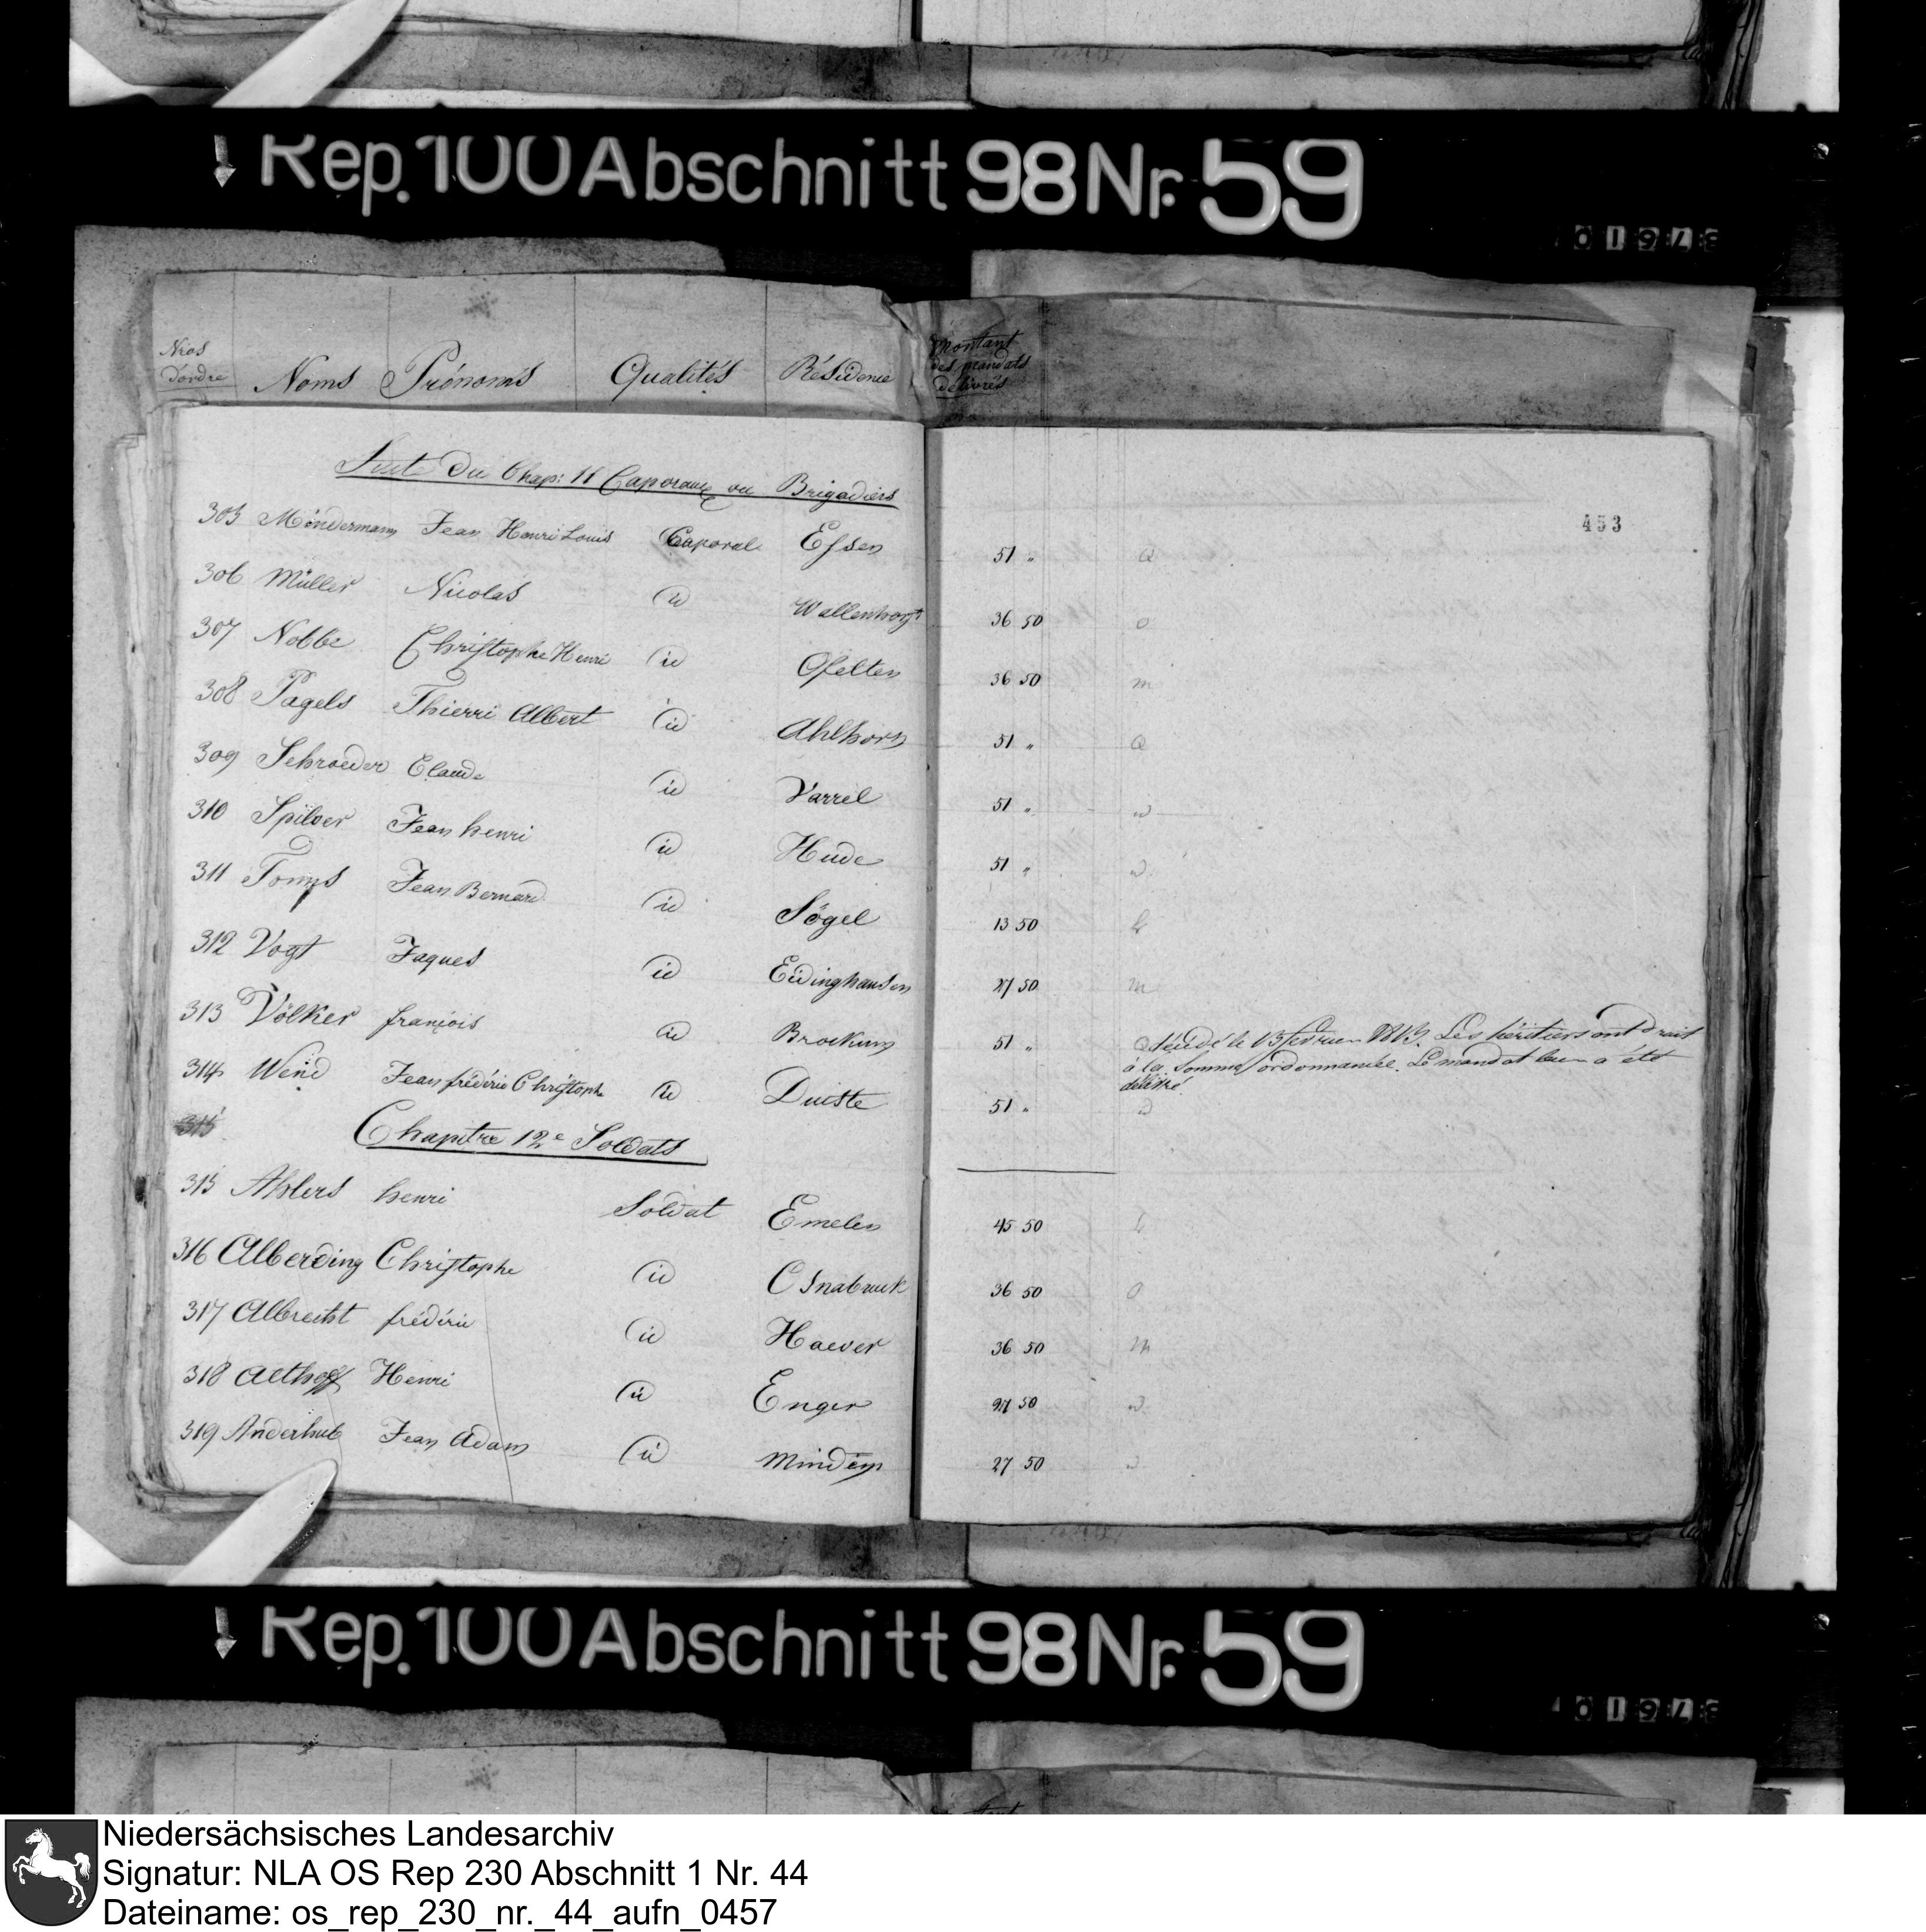 Rep. 100 Abschnitt 98 Nr. 59
Nros d'ordre Noms Prénoms Qualités Résidence Montant des mandats délivrés
Suite du Chap: 11 Caporaux ou Brigadiers
453
305 Möndermann Jean Henri Louis Caporal Essen 51 "
306 Müller Nicolas id Wallenhorst 36 50 O
307 Nobbe Christophe Henri id Ofelten 36 50 m
308 Pagels Thierri Albert id Ahlhorn 51 "
309 Schroeder Claude id Varrel 51 "
310 Spilver Jean henri id Hude 51 "
311 Tomys Jean Bernard id Sögel 13 50
312 Vogt Jaques id Eidinghausen 27 50 m
313 Völker françois id Brockum 51 " décédé le 13 fevrier 1813. Les héritiers ont droit
à la somme ordonnancée. Le mandat leur a été
délivré.
314 Wend Jean frédéric Christophe id Duiste 51 "
315
Chapitre 12e Soldats
315 Ahlers henri Soldat Emelen 45 50
316 Alberding Christophe id Osnabruck 36 50 O
317 Albrecht frédéric id Haever 36 50 m
318 Althoff Henri id Enger 27 50
319 Anderhub Jean Adam id Minden 27 50
Rep. 100 Abschnitt 98 Nr. 59
Niedersächsisches Landesarchiv
Signatur: NLA OS Rep 230 Abschnitt 1 Nr. 44
Dateiname: os_rep_230_nr._44_aufn_0457